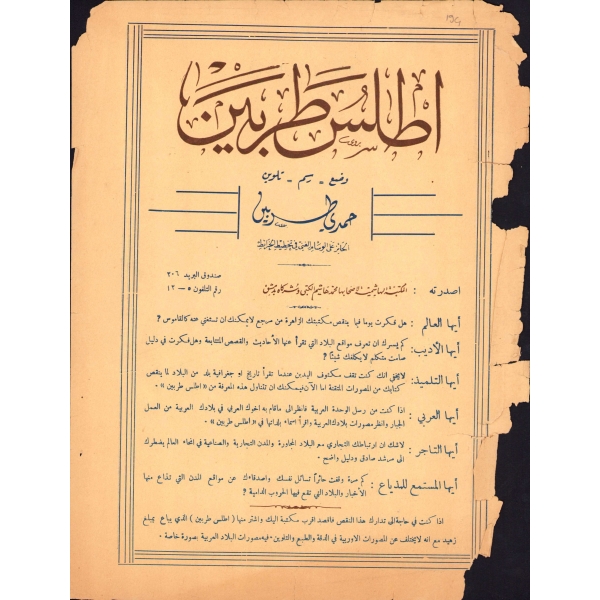 ١٩٤
اطلس طربين
وضع - رسم - تلوين
حمدي طربين
الحائز على الوسام العلمي في تخطيط الخرائط
صندوق البريد ٣٠٦
رقم التلفون ٥ - ١٢
اصدرته : المكتبة الهاشمية لأصحابها محمد هاشم الكتبي وشركاه بدمشق
أيها العالم : هل فكرت يوما فيما ينقص مكتبتك الزاهرة من مرجع لايمكنك ان تستغني عنه كالقاموس ؟
أيها الأديب : كم يسرك ان تعرف مواقع البلاد التي تقرأ عنها الأحاديث والقصص المتتابعة وهل فكرت في دليل
صامت متكلم لايكلفك شيئاً ؟
أيها التلميذ : لايخفى انك كنت تقف مكتوف اليدين عندما تقرأ تاريخ او جغرافية بلد من البلاد لما ينقص
كتابك من المصورات المتقنة اما الآن فيمكنك ان تتناول هذه المعرفة من « اطلس طربين » .
أيها العربي : اذا كنت من رسل الوحدة العربية فانظر الى ماقام به اخوك العربي في بلادك العربية من العمل
الجبار وانظر مصورات بلادك العربية واقرأ اسماء بلدانها في « اطلس طربين » .
أيها التاجر : لاشك ان ارتباطك التجاري مع البلاد المجاورة والمدن التجارية والصناعية في انحاء العالم يضطرك
الى مرشد صادق ودليل واضح .
أيها المستمع للمذياع : كم مرة وقفت حائراً تسائل نفسك واصدقاءك عن مواقع المدن التي تذاع منها
الأخبار والبلاد التي تقع فيها الحروب الدامية ؟
اذا كنت في حاجة الى تدارك هذا النقص فاقصد اقرب مكتبة اليك واشتر منها ( اطلس طربين ) الذي يباع بمبلغ
زهيد مع انه لايختلف عن المصورات الاوربية في الدقة والطبع والتلوين - فيه مصورات البلاد العربية بصورة خاصة .